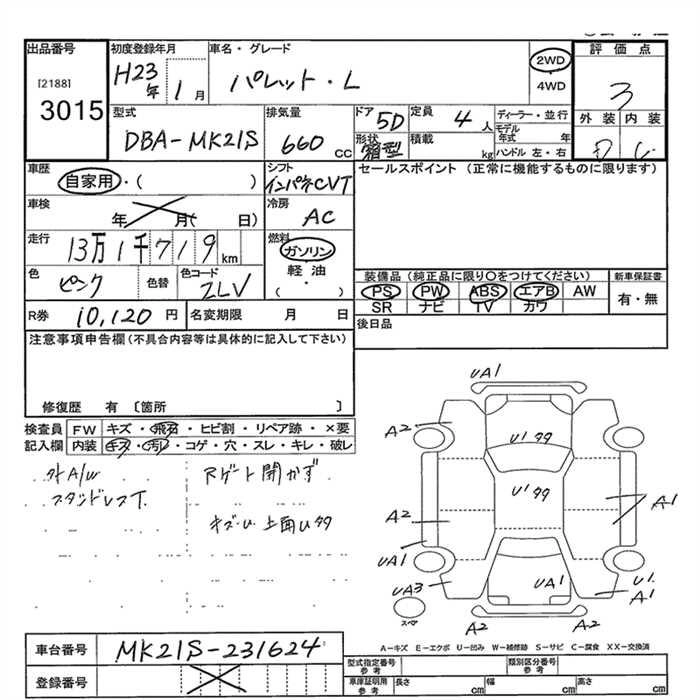 出品番号 初度登録年月 車名・グレード 評価点
[2188] 3015 H23年 1月 パレット・L 2WD 4WD 3
型式 排気量 ドア 定員 ディーラー・並行 外装 内装
DBA-MK21S 660cc 5D 4人 モデル年式 年 D C
形状 箱型 積載 kg ハンドル 左・右
車歴 シフト セールスポイント(正常に機能するものに限ります)
自家用・( ) インパネCVT
車検 年 月( 日) 冷房 AC
走行 13万1千719km 燃料 ガソリン
軽油・( )
色 ピンク 色替 色コード ZLV
装備品(純正品に限り○をつけてください) 新車保証書
PS PW ABS エアB AW 有・無
SR ナビ TV カワ
R券 10,120円 名変期限 月 日 後日品
注意事項申告欄(不具合内容等は具体的に記入して下さい)
修復歴 有 〔箇所 〕
検査員 FW キズ・飛石・ヒビ割・リペア跡・×要
記入欄 内装 キズ・汚れ・コゲ・穴・スレ・キレ・破レ
外A/W Rゲート開かず
スタンドレスT.
キズ・U 上面Uタタ
UA1
A2
U1タタ
U1タタ
A1
A2
UA1
UA3
UA1
U1.
A1
スペア
A2 A2
A-キズ E-エクボ U-凹み W-補修跡 S-サビ C-腐食 XX-交換済
車台番号 MK21S-231624
型式指定番号 参考 類別区分番号 参考
登録番号
車庫証明用 参考 長さ cm 幅 cm 高さ cm